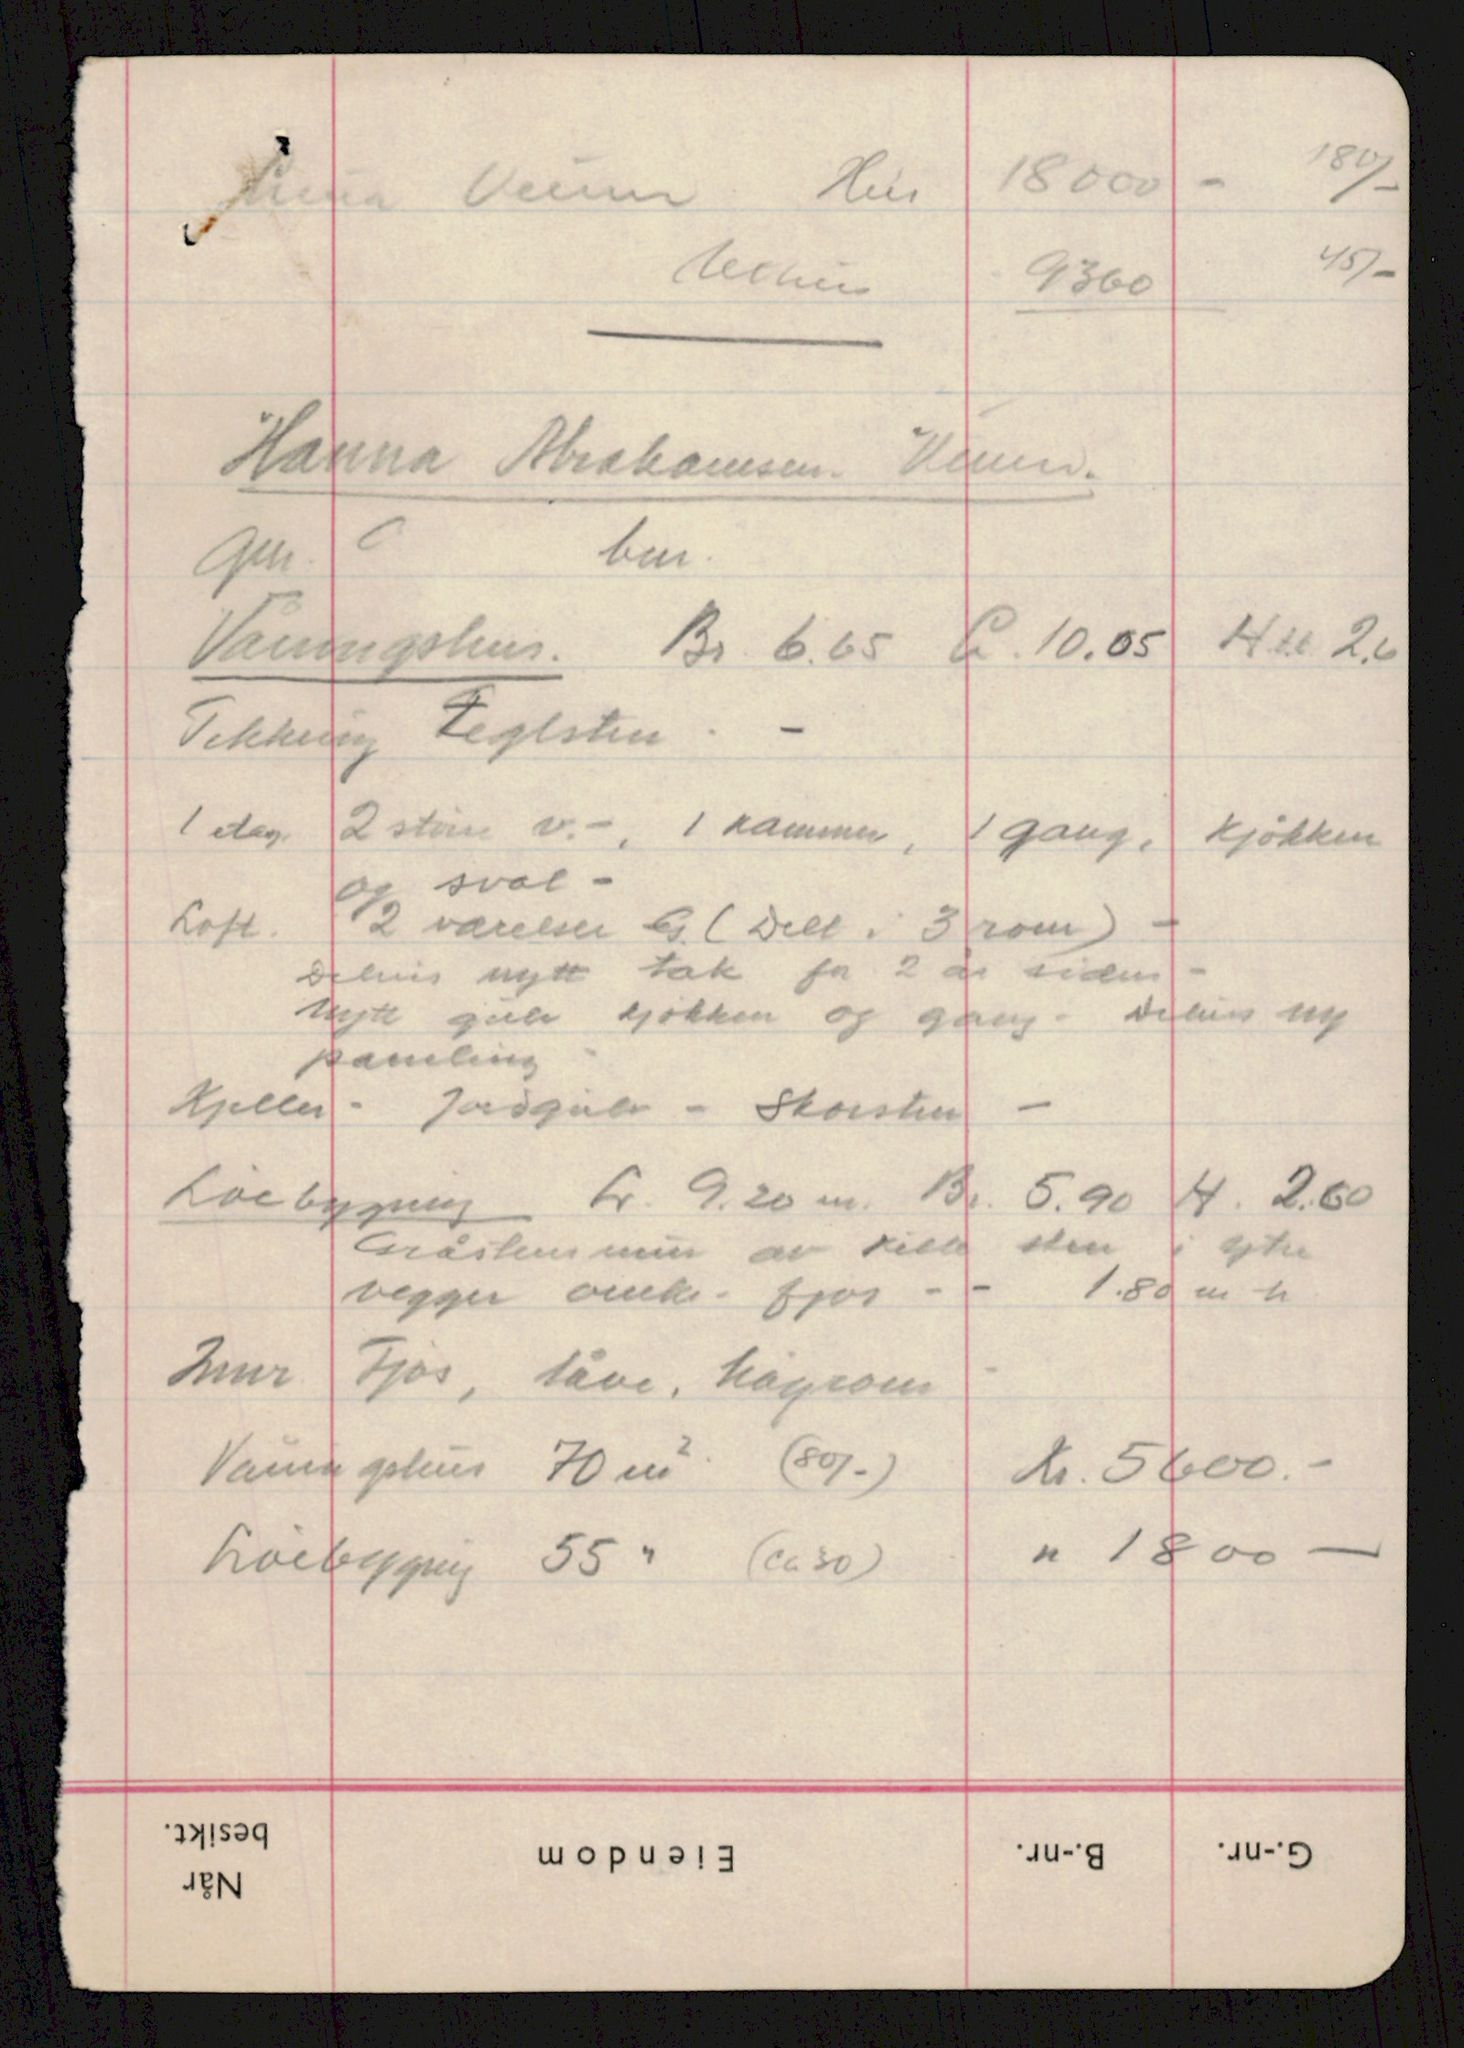 Hus 18000 - 180/-
Uthus 9360 45/-
Hanna Abrahamsen.
Gnr. bnr.
Våningshus. Br. 6.65 L. 10.05 H 2.6
Tekking Teglsten. -
1 etag. 2 störe v.-, 1 kammer, 1 gang, kjökken
og sval -
Loft. 2 værelser (Delt i 3 rom) -
Delvis nytt tak for 2 år siden -
Nytt gulv kjökken og gang - Delvis ny
paneling -
Kjeller - Jordgulv - Skorsten -
Löebygning L. 9.20 m. Br. 5.90 H. 2.60
Gråstensmur av sten i ytre
vegger omkr. fjös - - 1.80 m h
Innr. Fjös, låve, höyrom
Våningshus 70 m² (80/-) Kr. 5600.-
Löebygning 55 " (ca 30) " 1800 -
Når besikt. Eiendom B.-nr. G.-nr.